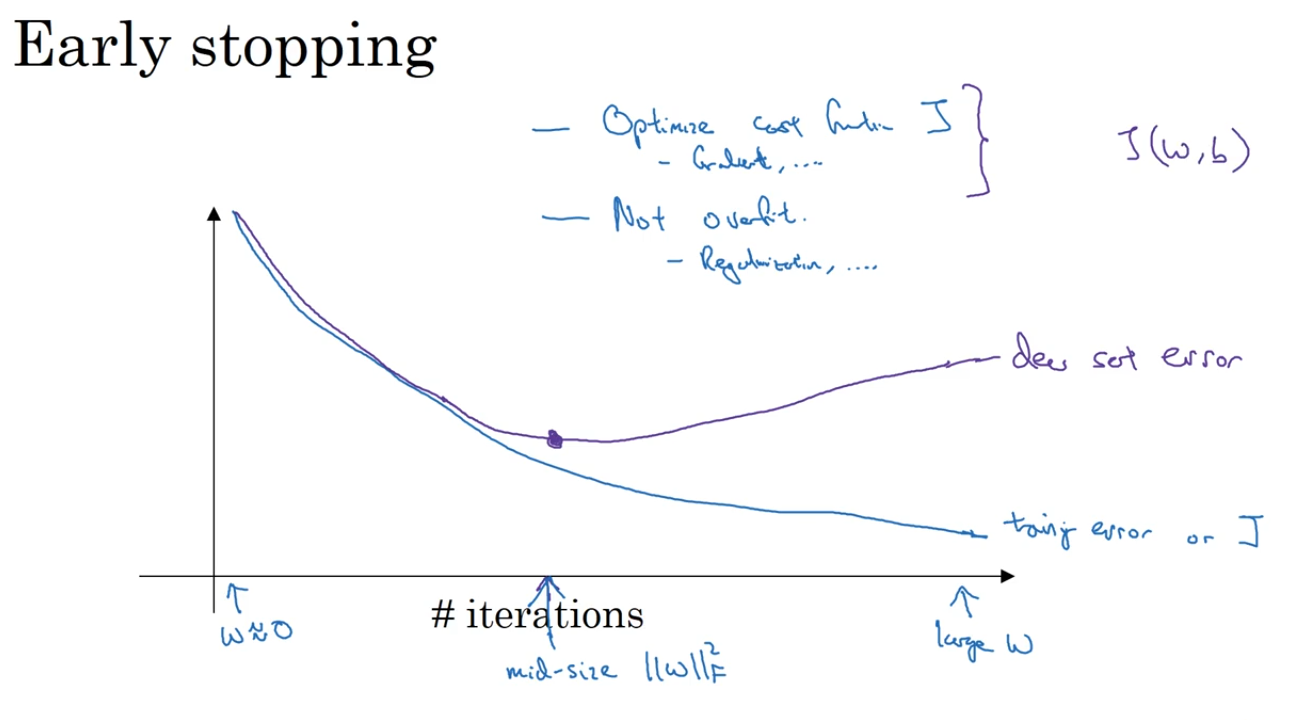 Early stopping
— Optimize cost function J
- Gradient, ....
J(w,b)
— Not overfit.
- Regularization, ....
dev set error
training error or J
# iterations
w≈0
mid-size ||w||²_F
large w